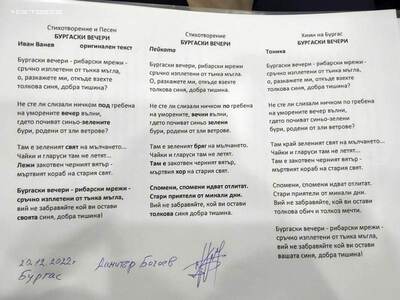 Стихотворение и Песен
БУРГАСКИ ВЕЧЕРИ
Иван Ванев оригинален текст
Бургаски вечери - рибарски мрежи -
сръчно изплетени от тънка мъгла,
о, разкажете ми, откъде взехте
толкова синя, добра тишина?
Не сте ли слизали ничком под гребена
на уморените вечер вълни,
гдето почиват синьо-зелените
бури, родени от зли ветрове?
Там е зеленият свят на мълчането...
Чайки и гларуси там не летят.
Лежи закотвен черният вятър -
мъртвият кораб на стария свят.
Бургаски вечери - рибарски мрежи -
сръчно изплетени от тънка мъгла,
вий не забравяйте кой ви остави
своята синя, добра тишина!
Стихотворение
БУРГАСКИ ВЕЧЕРИ
Пейката
Бургаски вечери - рибарски мрежи -
сръчно изплетени от тънка мъгла,
о, разкажете ми, откъде взехте
толкова синя, добра тишина?
Не сте ли слизали ничком по гребена
на уморените, вечни вълни,
гдето почиват синьо зелени
бури, родени от зли ветрове?
Там е зеленият бряг на мълчането...
Чайки и гларуси там не летят.
Там е закотвен черният вятър -
мъртвият хор на стария свят.
Спомени, спомени идват отлитат.
Стари приятели от минали дни.
Вий не забравяйте, кой ви остави
толкова синя, добра тишина.
Химн на Бургас
БУРГАСКИ ВЕЧЕРИ
Тоника
Бургаски вечери - рибарски мрежи -
сръчно изплетени от тънка мъгла,
о, разкажете ми, откъде взехте
толкова синя, добра тишина?
Не сте ли слизали ничком по гребена
на уморените вечер вълни,
гдето почиват синьо-зелените
бури, родени от зли ветрове?
Там край зеленият свят на мълчането...
Чайки и гларуси там не летят...
Там е закотвен черният вятър -
мъртвият кораб на стария свят.
Спомени, спомени, идват отлитат.
Стари приятели от минали дни.
Вий не забравяйте кой ви остави
толкова обич и толкова мечти.
Бургаски вечери - рибарски мрежи -
сръчно изплетени от тънка мъгла,
вий не забравяйте кой ви остави
вашата синя, добра тишина!
20.12.2022г.
Бургас
Димитър Бочев